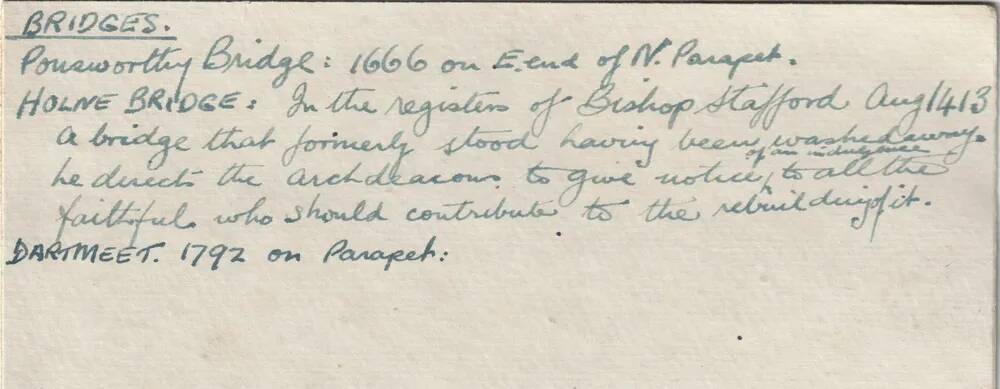 BRIDGES.
Ponsworthy Bridge: 1666 on E. end of N. Parapet.
HOLNE BRIDGE: In the registers of Bishop Stafford Aug 1413
a bridge that formerly stood having been washed away.
of an indulgence
he directs the archdeacons to give notice, to all the
faithful who should contribute to the rebuilding of it.
DARTMEET. 1792 on Parapet: